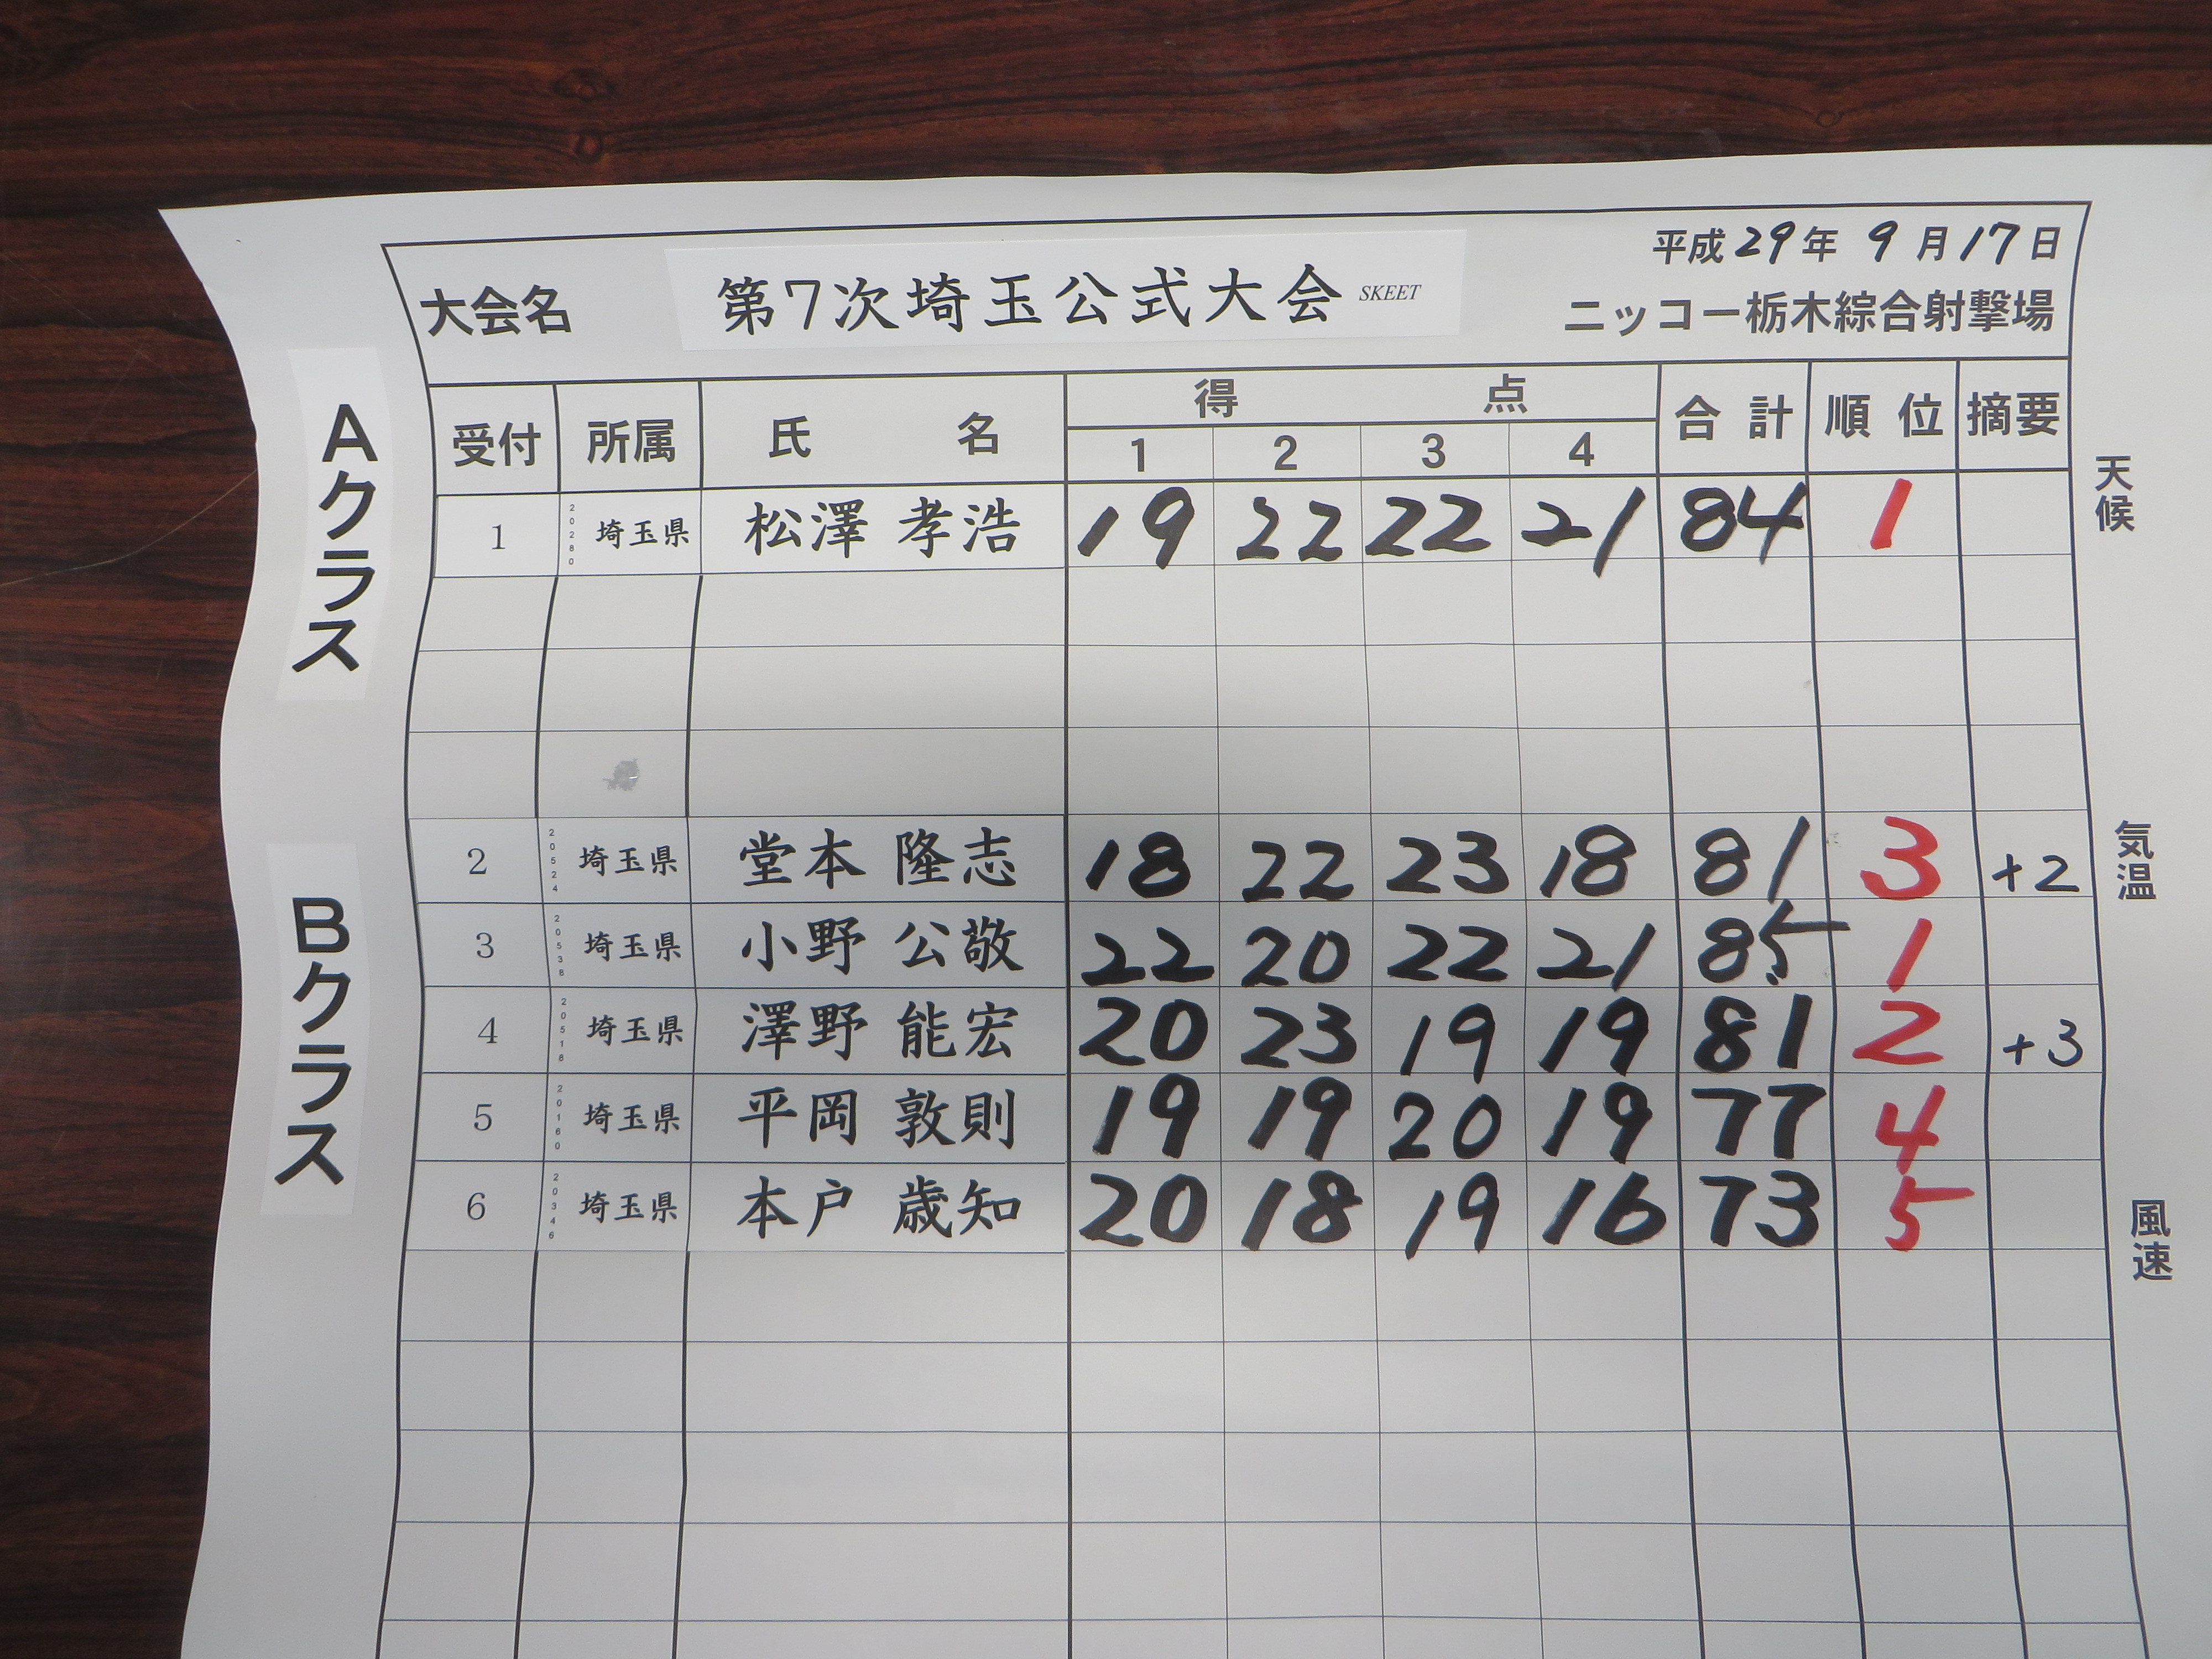 平成29年 9月17日
大会名 第7次埼玉公式大会 SKEET
ニッコー栃木綜合射撃場
受付 所属 氏名 得点 合計 順位 摘要
1 2 3 4
Aクラス
1 20280 埼玉県 松澤 孝浩 19 22 22 21 84 1
Bクラス
2 20524 埼玉県 堂本 隆志 18 22 23 18 81 3 +2
3 20538 埼玉県 小野 公敬 22 20 22 21 85 1
4 20518 埼玉県 澤野 能宏 20 23 19 19 81 2 +3
5 20160 埼玉県 平岡 敦則 19 19 20 19 77 4
6 20346 埼玉県 本戸 歳知 20 18 19 16 73 5
天候
気温
風速